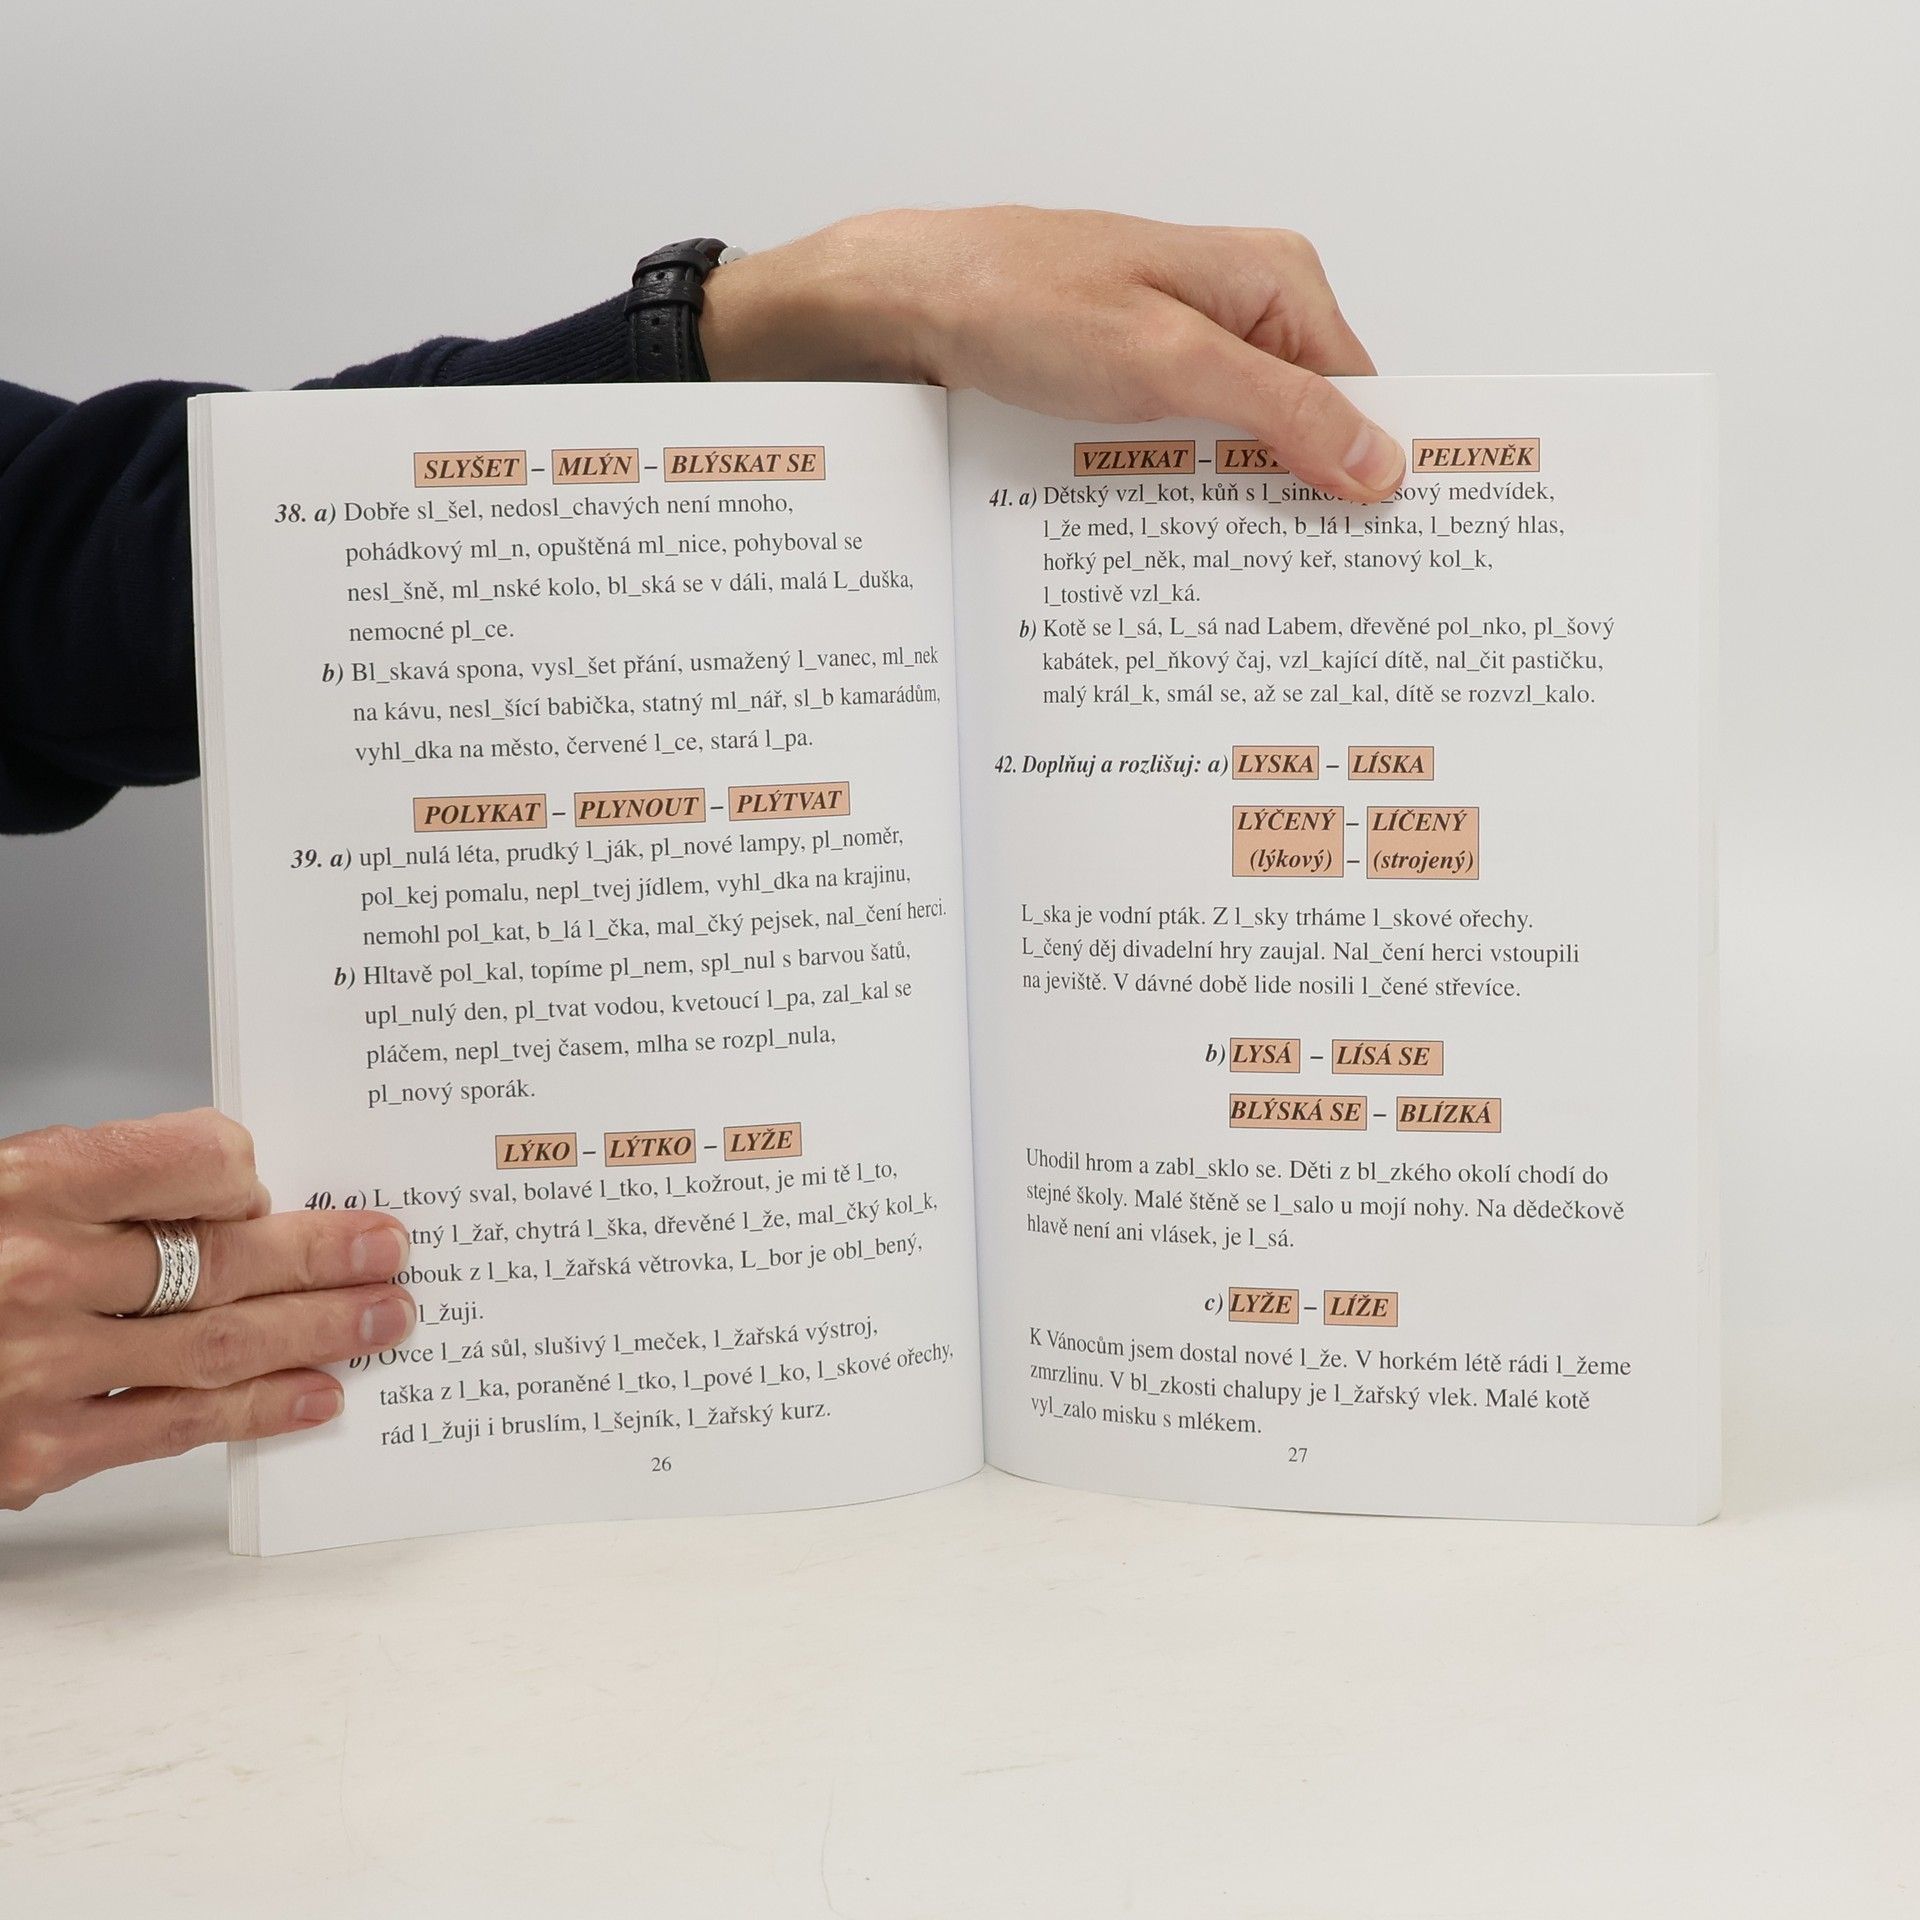 SLYŠET – MLÝN – BLÝSKAT SE
38. a) Dobře sl_šel, nedosl_chavých není mnoho,
pohádkový ml_n, opuštěná ml_nice, pohyboval se
nesl_šně, ml_nské kolo, bl_ská se v dáli, malá L_duška,
nemocné pl_ce.
b) Bl_skavá spona, vysl_šet přání, usmažený l_vanec, ml_nek
na kávu, nesl_šící babička, statný ml_nář, sl_b kamarádům,
vyhl_dka na město, červené l_ce, stará l_pa.
POLYKAT – PLYNOUT – PLÝTVAT
39. a) upl_nulá léta, prudký l_ják, pl_nové lampy, pl_noměr,
pol_kej pomalu, nepl_tvej jídlem, vyhl_dka na krajinu,
nemohl pol_kat, b_lá l_čka, mal_čký pejsek, nal_čení herci.
b) Hltavě pol_kal, topíme pl_nem, spl_nul s barvou šatů,
upl_nulý den, pl_tvat vodou, kvetoucí l_pa, zal_kal se
pláčem, nepl_tvej časem, mlha se rozpl_nula,
pl_nový sporák.
LÝKO – LÝTKO – LYŽE
40. a) L_tkový sval, bolavé l_tko, l_kožrout, je mi tě l_to,
l_žař, chytrá l_ška, dřevěné l_že, mal_čký kol_k,
z l_ka, l_žařská větrovka, L_bor je obl_bený,
l_žuji.
b) Ovce l_zá sůl, slušivý l_meček, l_žařská výstroj,
taška z l_ka, poraněné l_tko, l_pové l_ko, l_skové ořechy,
rád l_žuji i bruslím, l_šejník, l_žařský kurz.
26
VZLYKAT – – PELYNĚK
41. a) Dětský vzl_kot, kůň s medvídek,
l_že med, l_skový ořech, b_lá l_sinka, l_bezný hlas,
hořký pel_něk, mal_nový keř, stanový kol_k,
l_tostivě vzl_ká.
b) Kotě se l_sá, L_sá nad Labem, dřevěné pol_nko, pl_šový
kabátek, pel_ňkový čaj, vzl_kající dítě, nal_čit pastičku,
malý král_k, smál se, až se zal_kal, dítě se rozvzl_kalo.
42. Doplňuj a rozlišuj: a) LYSKA – LÍSKA
LÝČENÝ – LÍČENÝ
(lýkový) – (strojený)
L_ska je vodní pták. Z l_sky trháme l_skové ořechy.
L_čený děj divadelní hry zaujal. Nal_čení herci vstoupili
na jeviště. V dávné době lide nosili l_čené střevíce.
b) LYSÁ – LÍSÁ SE
BLÝSKÁ SE – BLÍZKÁ
Uhodil hrom a zabl_sklo se. Děti z bl_zkého okolí chodí do
stejné školy. Malé štěně se l_salo u mojí nohy. Na dědečkově
hlavě není ani vlásek, je l_sá.
c) LYŽE – LÍŽE
K Vánocům jsem dostal nové l_že. V horkém létě rádi l_žeme
zmrzlinu. V bl_zkosti chalupy je l_žařský vlek. Malé kotě
vyl_zalo misku s mlékem.
27